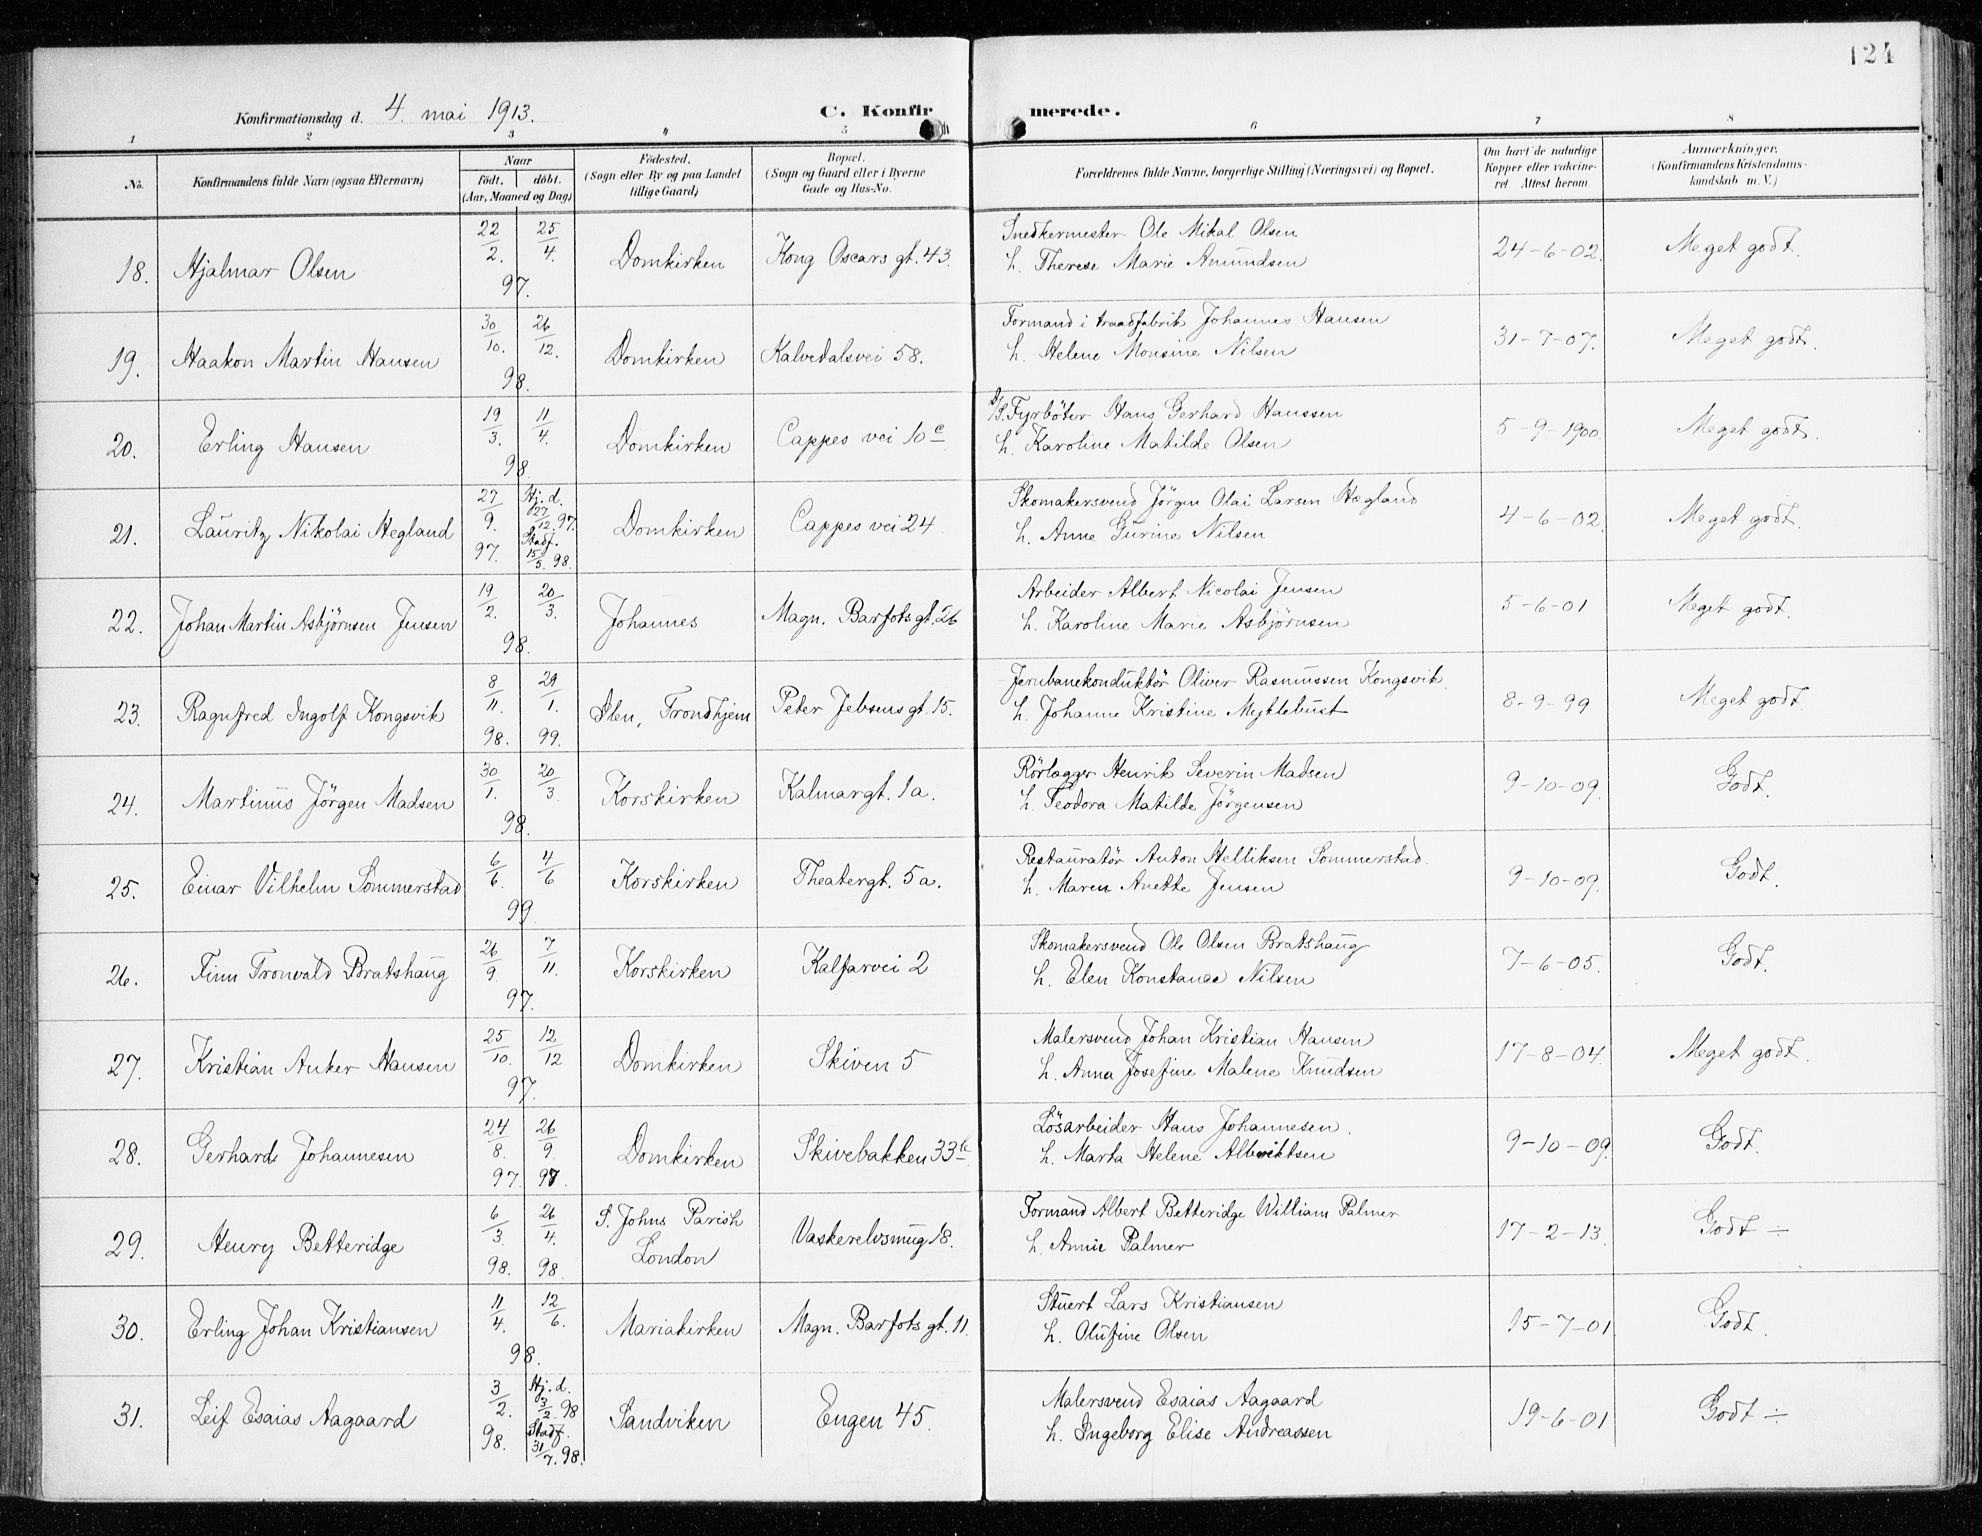 124
Konfirmationsdag d. 4. mai 1913.
C. Konfirmerede.
1 2 3 4 5 6 7 8
No. Konfirmandens fulde Navn (ogsaa Efternavn) Naar født. døbt. (Aar, Maaned og Dag) Fødested. (Sogn eller By og paa Landet tillige Gaard) Bopæl. (Sogn og Gaard eller i Byerne Gade og Hus-No. Forældrenes fulde Navne, borgerlige Stilling (Næringsvei) og Bopæl. Om havt de naturlige Kopper eller vakcineret. Attest herom. Anmærkninger. (Konfirmandens Kristendomskundskab m. V.)
18. Hjalmar Olsen 22/2. 25/4. 97. Domkirken Kong Oscars gt. 43. Snedkermester Ole Mikal Olsen 24-6-02. Meget godt.
h. Therese Marie Amundsen
19. Haakon Martin Hansen 30/10. 26/12. 98. Domkirken Kalvedalsvei 58. Formand i traadfabrik Johannes Hansen 31-7-07. Meget godt.
h. Helene Monsine Nilsen
20. Erling Hansen 19/3. 11/4. 98. Domkirken Cappes vei 10c D/S. Fyrbøter Hans Gerhard Hanssen 5-9-1900. Meget godt.
h. Karoline Matilde Olsen
21. Lauritz Nikolai Hegland 27/9. 97. Hj. d. 27/12. 97. Stadf. 15/5. 98. Domkirken Cappes vei 24 Skomakersvend Jörgen Olai Larsen Hegland 4-6-02. Meget godt.
h. Anne Gurine Nilsen
22. Johan Martin Asbjørnsen Jensen 19/2. 20/3. 98. Johannes Magn. Barfots gt. 26 Arbeider Albert Nicolai Jensen 5-6-01 Meget godt.
h. Karoline Marie Asbjørnsen
23. Ragnfred Ingolf Kongsvik 8/11. 98. 29/1. 99. Ilen, Trondhjem Peter Jebsens gt. 15. Jernbanekonduktør Oliver Rasmussen Kongsvik. 8-9-99 Meget godt.
h. Johanne Kristine Myklebust
24. Martinus Jörgen Madsen 30/1. 20/3. 98. Korskirken Kalmargt. 1a. Rörlægger Henrik Severin Madsen 9-10-09. Godt.
h. Teodora Matilde Jörgensen
25. Einar Vilhelm Sommerstad 6/6. 4/6 99. Korskirken Theatergt. 5a. Restauratør Anton Helliksen Sommerstad. 9-10-09. Godt.
h. Maren Anette Jensen
26. Finn Tronvald Bratshaug 26/9. 7/11. 97. Korskirken Kalfarvei 2 Skomakersvend Ole Olsen Bratshaug 7-6-05. Godt.
h. Elen Konstance Nilsen
27. Kristian Anker Hansen 25/10. 12/12 97. Domkirken Skiven 5 Malersvend Johan Kristian Hansen 17-8-04. Meget godt.
h. Anna Josefine Malene Knudsen
28. Gerhard Johannesen 24/8. 97. 26/9. 97. Domkirken Skivebakken 33 Lösarbeider Hans Johannesen. 9-10-09. Godt.
h. Marta Helene Albriktsen
29. Henry Betteridge 6/3. 98. 26/4. 98. S. Johns Parish London Vaskerelvsmug 18. Formand Albert Betteridge William Palmer 17-2-13. Godt ÷
h. Annie Palmer
30. Erling Johan Kristiansen 11/4. 12/6. 98. Mariakirken Magn. Barfots gt. 11. Stuert Lars Kristiansen 15-7-01 Godt.
h. Olufine Olsen
31. Leif Esaias Aagaard 3/2. 98. Hj. d. 3/2. 98 Stadf. 31/7. 98. Sandviken Engen 45. Malersvend Esaias Aagaard 19-6-01 Godt ÷
h. Ingeborg Elise Andreassen